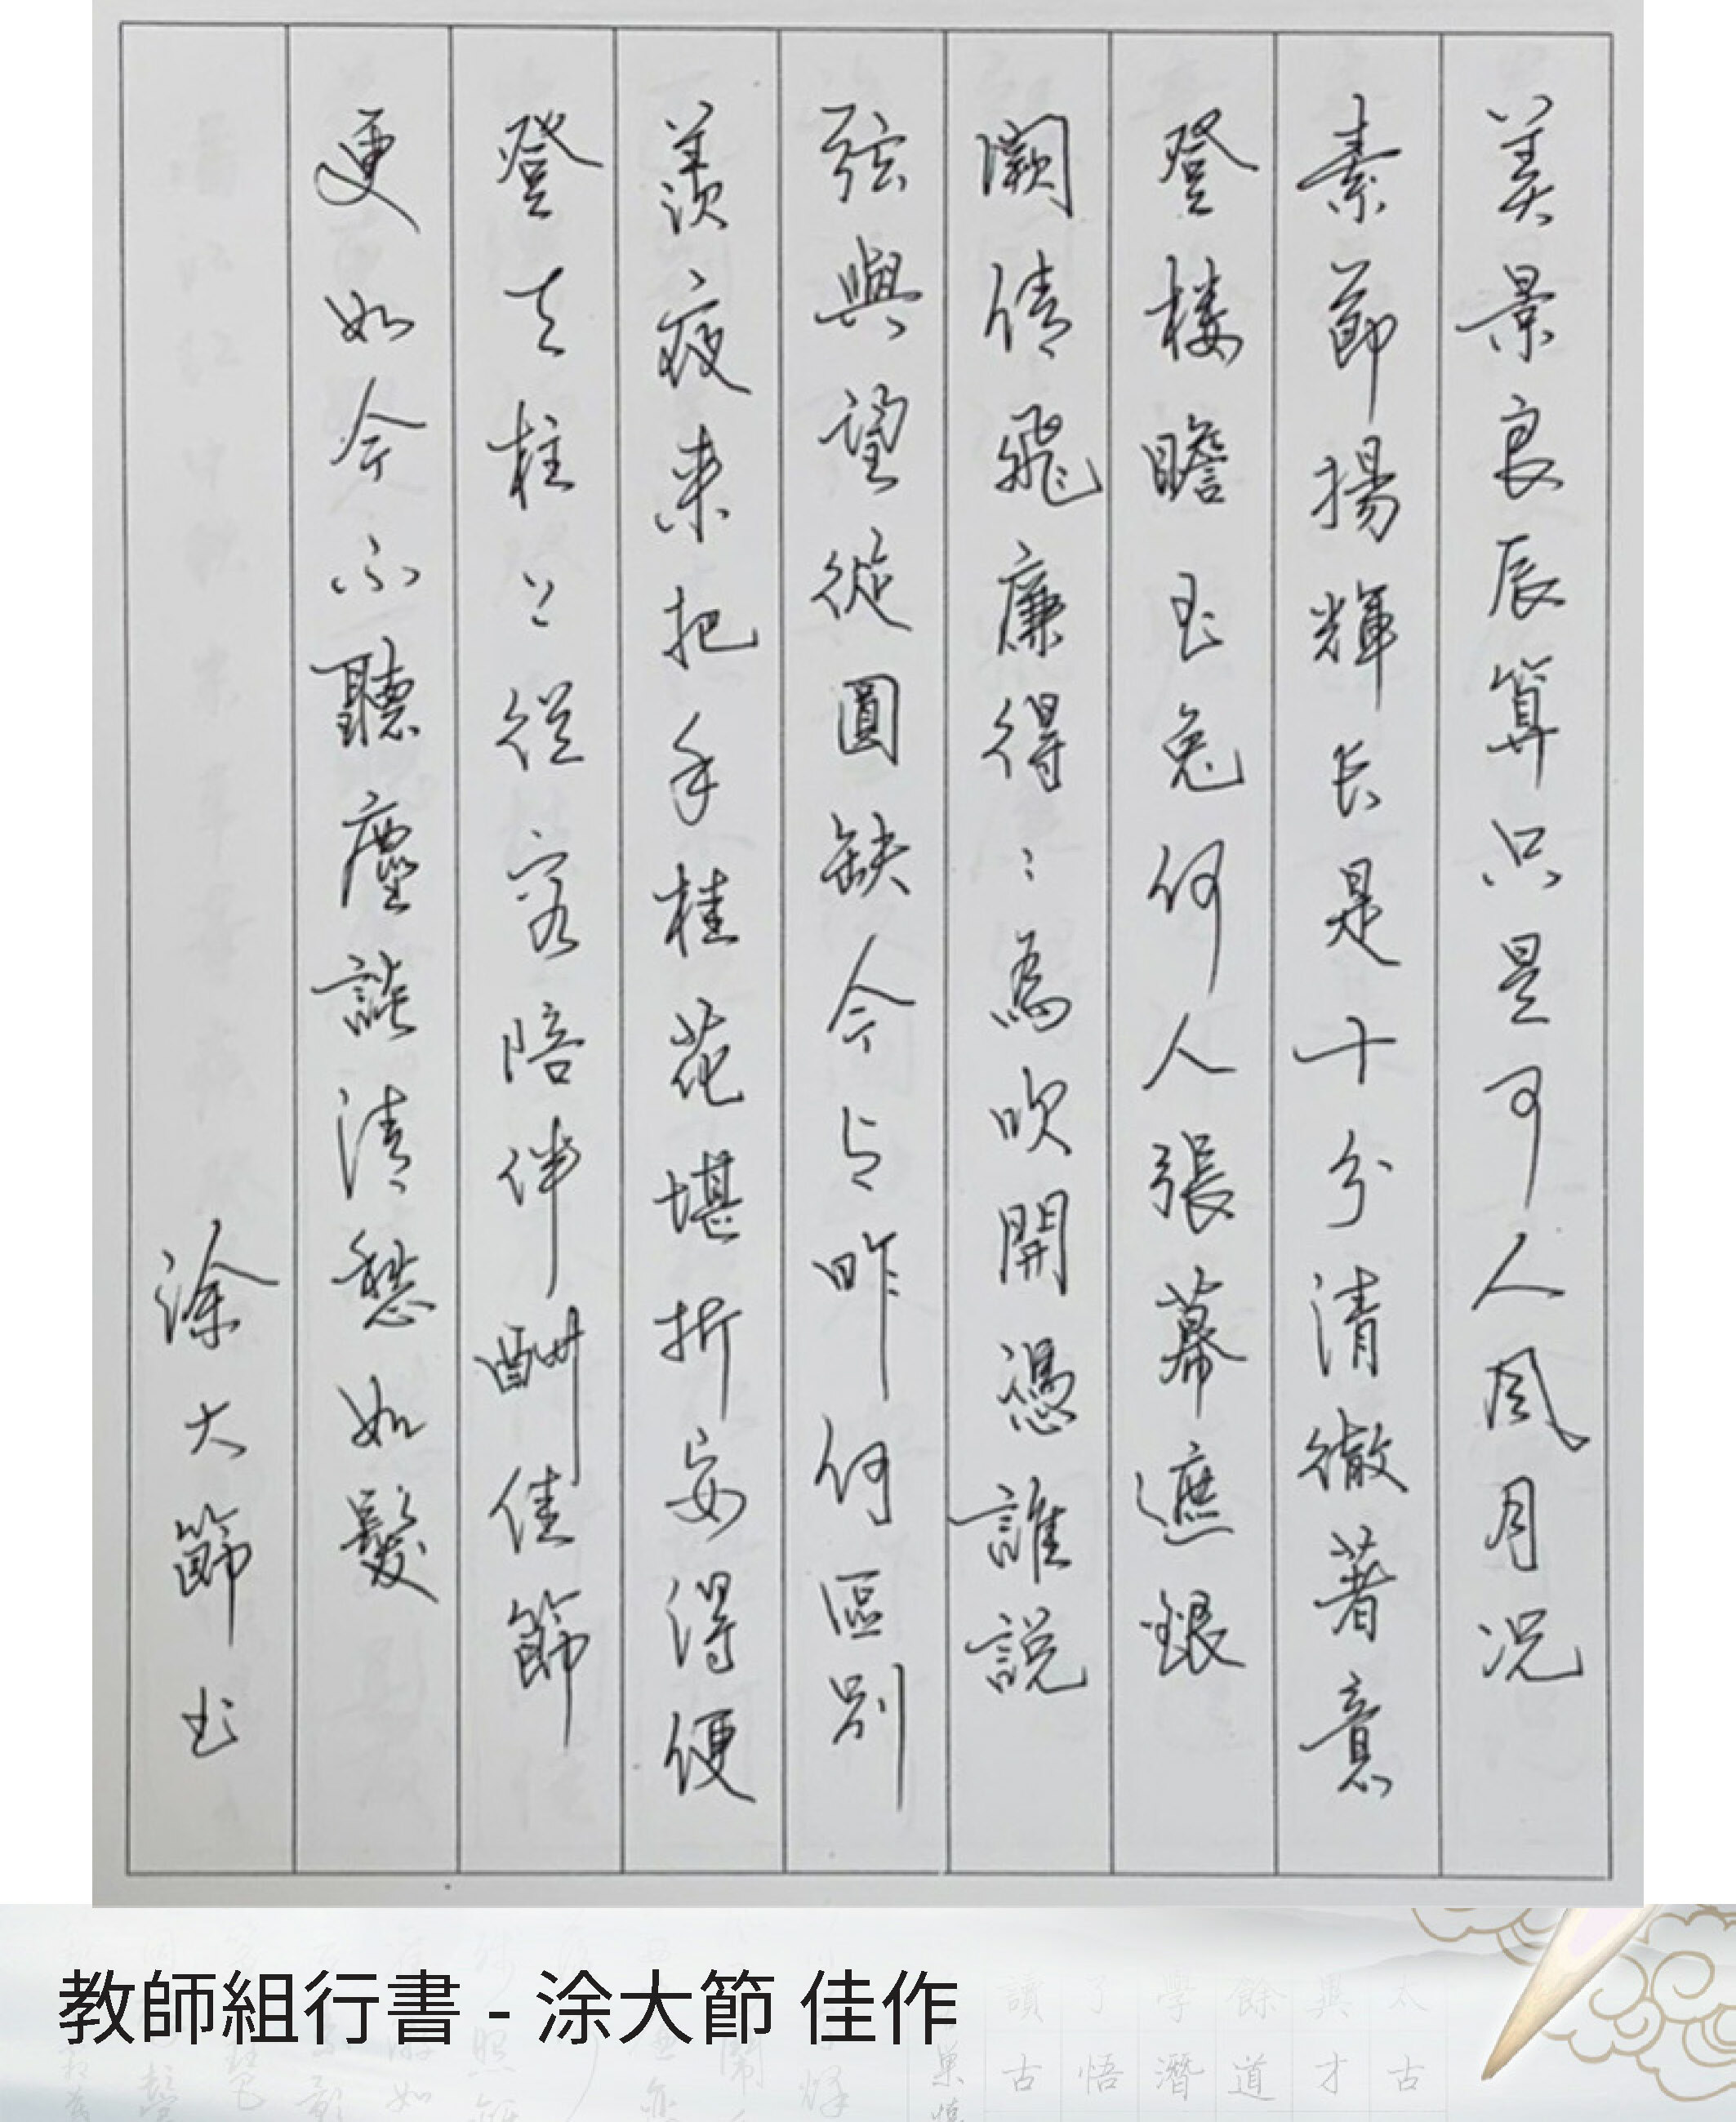 美景良辰算只是可人風月况
素節揚輝長是十分清徹著意
登樓瞻玉兔何人張幕遮銀
闕倩飛廉得〻為吹開憑誰說
弦與望從圓缺今与昨何區別
羨夜來把手桂花堪折安得便
登天柱上從容陪伴酬佳節
更如今不聽麈談清愁如髮
涂大節书
教師組行書 - 涂大節 佳作